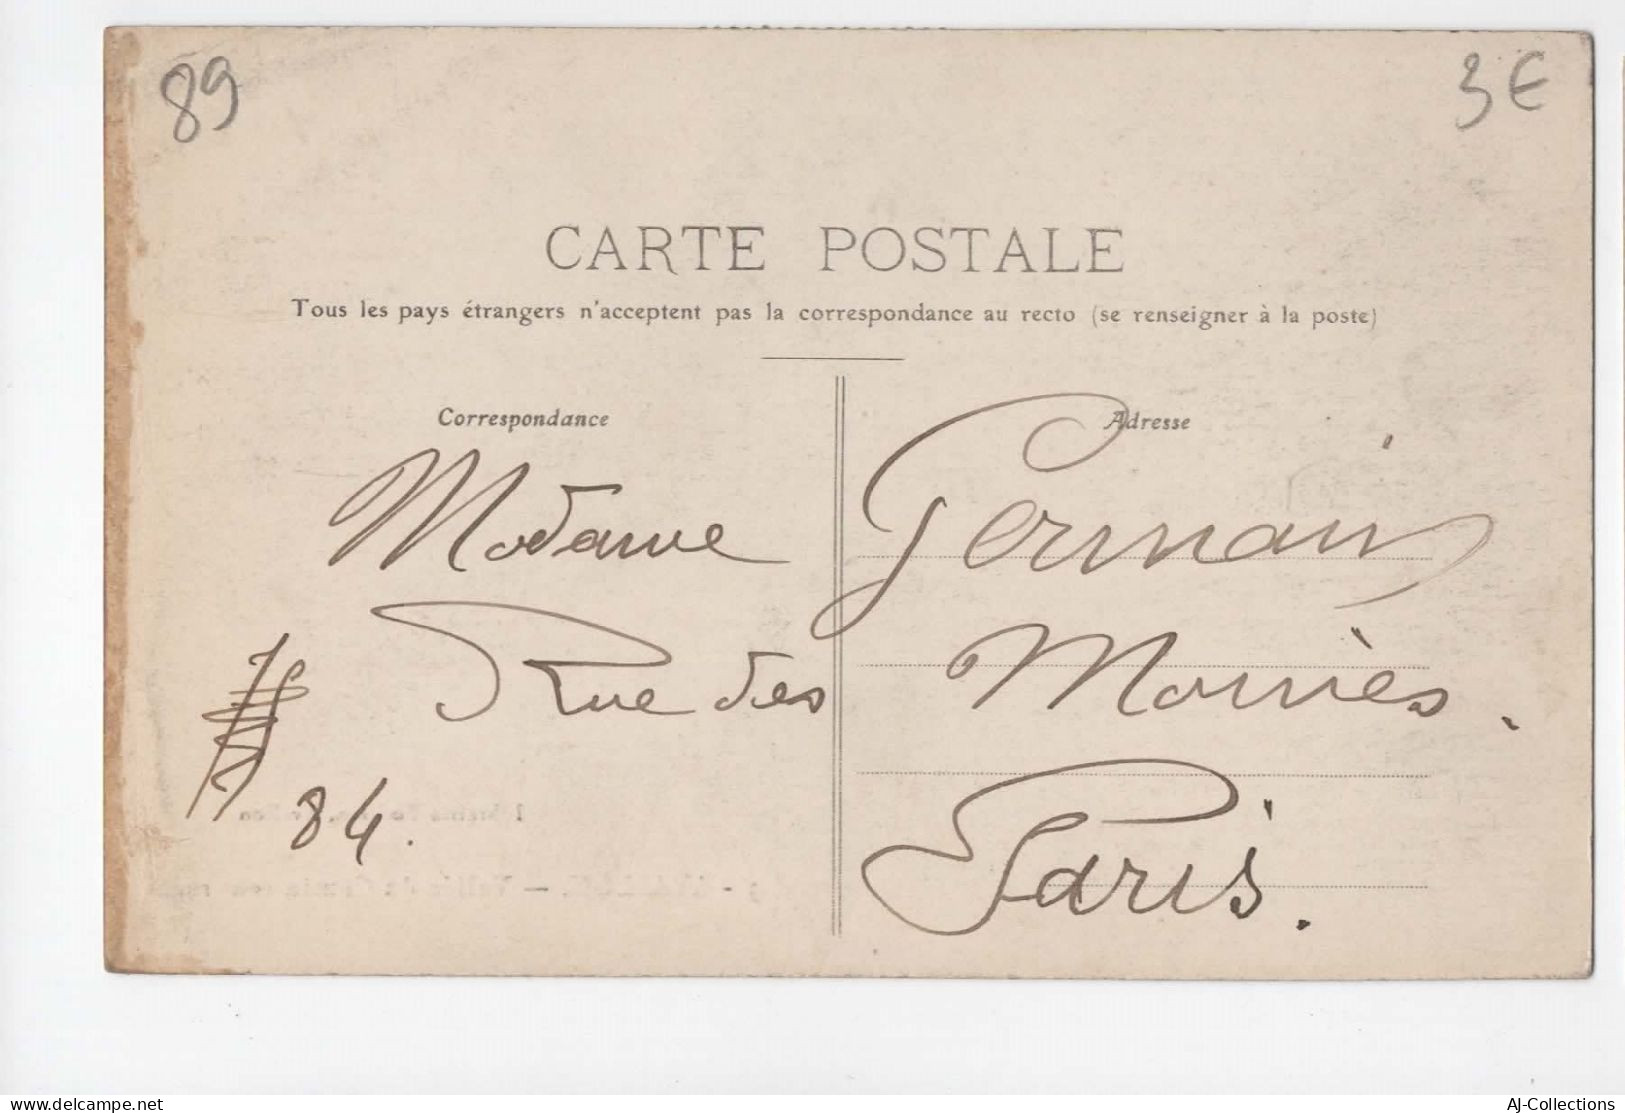 89
3 €
CARTE POSTALE
Tous les pays étrangers n'acceptent pas la correspondance au recto (se renseigner à la poste)
Correspondance
Adresse
Madame Germain
Rue des Moines.
84.
Paris.
www.delcampe.net
AJ-Collections